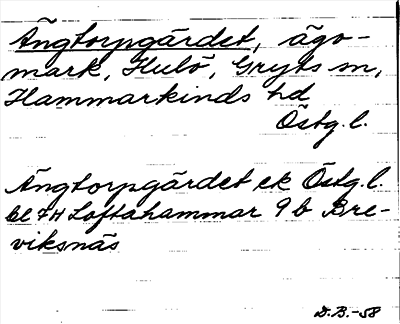 Ängtorpgärdet, ägo-
mark, Hulö, Gryts sn,
Hammarkinds hd
Östg.l.
Ängtorpgärdet ek Östg.l.
bl 7H Loftahammar 9b Bre-
viksnäs
D.B.-58